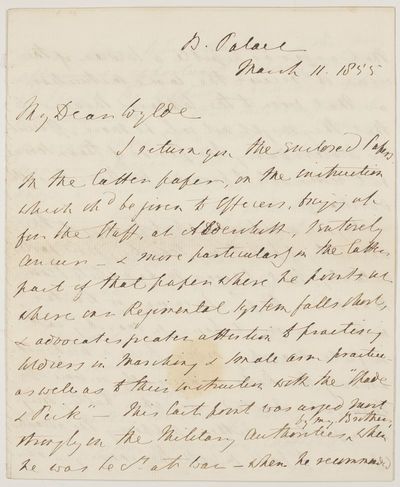 B. Palace
March 11. 1855
My Dear Wylde
I return you the Enclosed Papers
In the latter paper, on the instruction
which shd be given to Officers,
for the Staff, at Aldershott, I entirely
concur - & more particularly in the latter
part of that paper where he points out
where our Regimental System falls short,
& advocates greater attention to practising
in Marching & small arm practice
as well as to their instruction with the "Spade
& Pick" - This last point was urged most
strongly on the Military Authorities by my Brother, when
he was Se at War - when he recommended